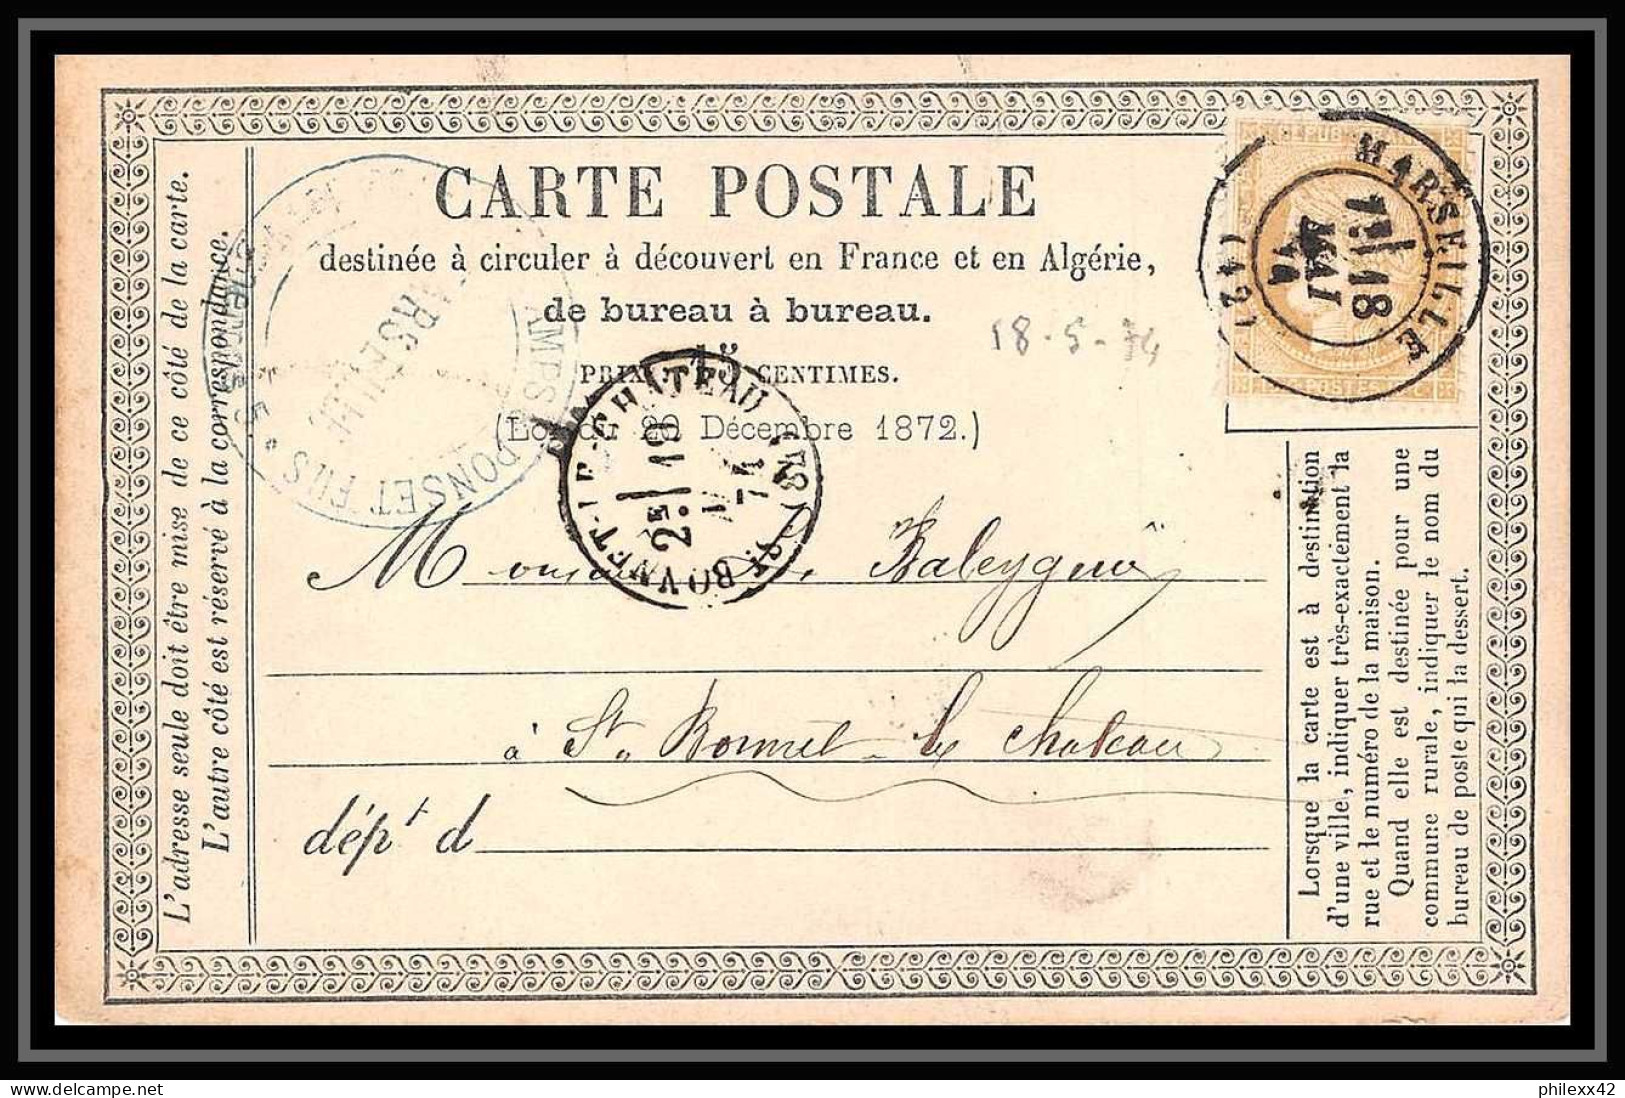 CARTE POSTALE
destinée à circuler à découvert en France et en Algérie,
de bureau à bureau.
PRIX: 15 CENTIMES.
(Loi du 20 Décembre 1872.)
18-5-74
MARSEILLE
18
MAI
74
(12)
POSTES
MARSEILLE
PONSET FILS
ST BONNET-LE-CHATEAU
2E 19
74
Monsieur
à St. Bonnet le Chateau
dépt d
L'adresse seule doit être mise de ce côté de la carte.
L'autre côté est réservé à la correspondance.
Lorsque la carte est à destination
d'une ville, indiquer très-exactement la
rue et le numéro de la maison.
Quand elle est destinée pour une
commune rurale, indiquer le nom du
bureau de poste qui la dessert.
www.delcampe.net
philexx42